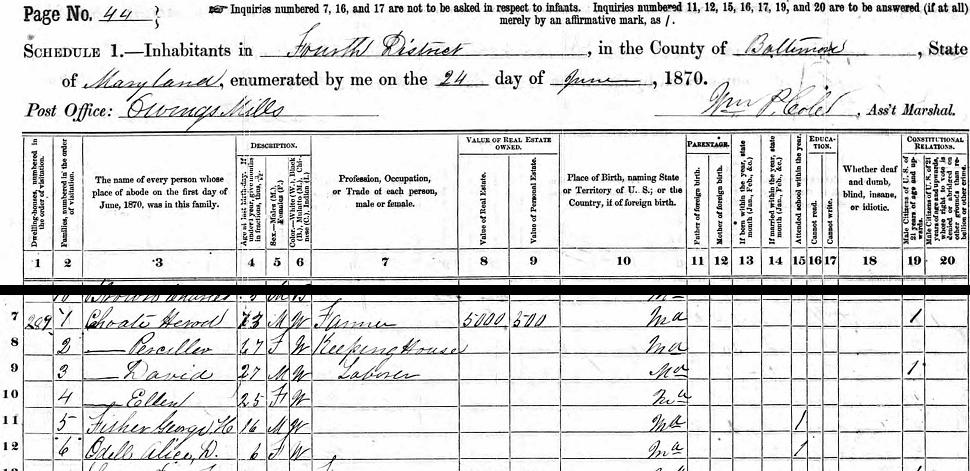 Page No. 44
☞ Inquiries numbered 7, 16, and 17 are not to be asked in respect to infants. Inquiries numbered 11, 12, 15, 16, 17, 19, and 20 are to be answered (if at all)
merely by an affirmative mark, as /.
SCHEDULE 1.—Inhabitants in Fourth District, in the County of Baltimore, State
of Maryland, enumerated by me on the 24 day of June, 1870.
Post Office: Owings Mills Wm P. Cole, Ass't Marshal.
Dwelling-houses, numbered in the order of visitation.
Families, numbered in the order of visitation.
The name of every person whose place of abode on the first day of June, 1870, was in this family.
DESCRIPTION.
Age at last birth-day. If under 1 year, give months in fractions, thus, 3/12
Sex.—Males (M.), Females (F.)
Color.—White (W.), Black (B.), Mulatto (M.), Chinese (C.), Indian (I.)
Profession, Occupation, or Trade of each person, male or female.
VALUE OF REAL ESTATE OWNED.
Value of Real Estate.
Value of Personal Estate.
Place of Birth, naming State or Territory of U. S.; or the Country, if of foreign birth.
PARENTAGE.
Father of foreign birth.
Mother of foreign birth.
If born within the year, state month (Jan., Feb., &c.)
If married within the year, state month (Jan., Feb., &c.)
Attended school within the year.
EDUCATION.
Cannot read.
Cannot write.
Whether deaf and dumb, blind, insane, or idiotic.
CONSTITUTIONAL RELATIONS.
Male Citizens of U. S. of 21 years of age and upwards.
Male Citizens of U. S. of 21 years of age and upwards, whose right to vote is denied or abridged on other grounds than rebellion or other crime.
1 2 3 4 5 6 7 8 9 10 11 12 13 14 15 16 17 18 19 20
7 289 1 Choate 73 M W Farmer 5000 500 Md 1
8 2 — F W Keeping House Md
9 3 — David 27 M W Laborer Md 1
10 4 — Ellen 25 F W Md
11 5 Fisher George H 16 M W Md 1
12 6 Odell Alice, D. 6 F W Md 1